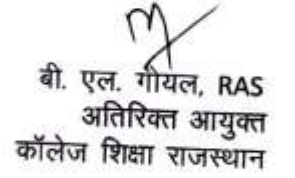 बी. एल. गोयल, RAS
अतिरिक्त आयुक्त
कॉलेज शिक्षा राजस्थान